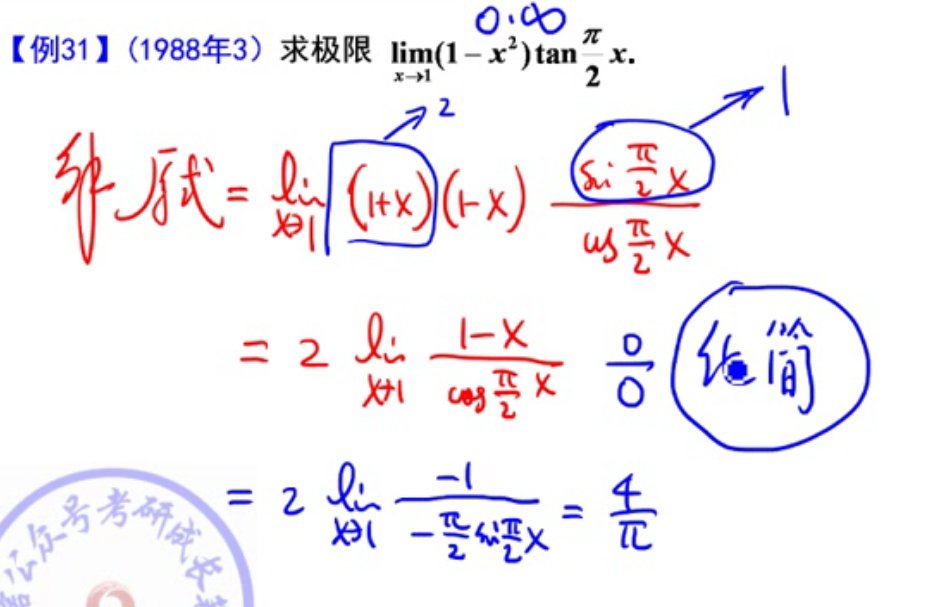 0·∞
【例31】(1988年3) 求极限 lim_{x→1}(1-x²)tan π/2 x.
2
1
解 原式 = lim_{x→1} (1+x)(1-x) sin π/2 x / cos π/2 x
= 2 lim_{x→1} 1-x / cos π/2 x 0/0 化简
= 2 lim_{x→1} -1 / -π/2 sin π/2 x = 4/π
公众号考研